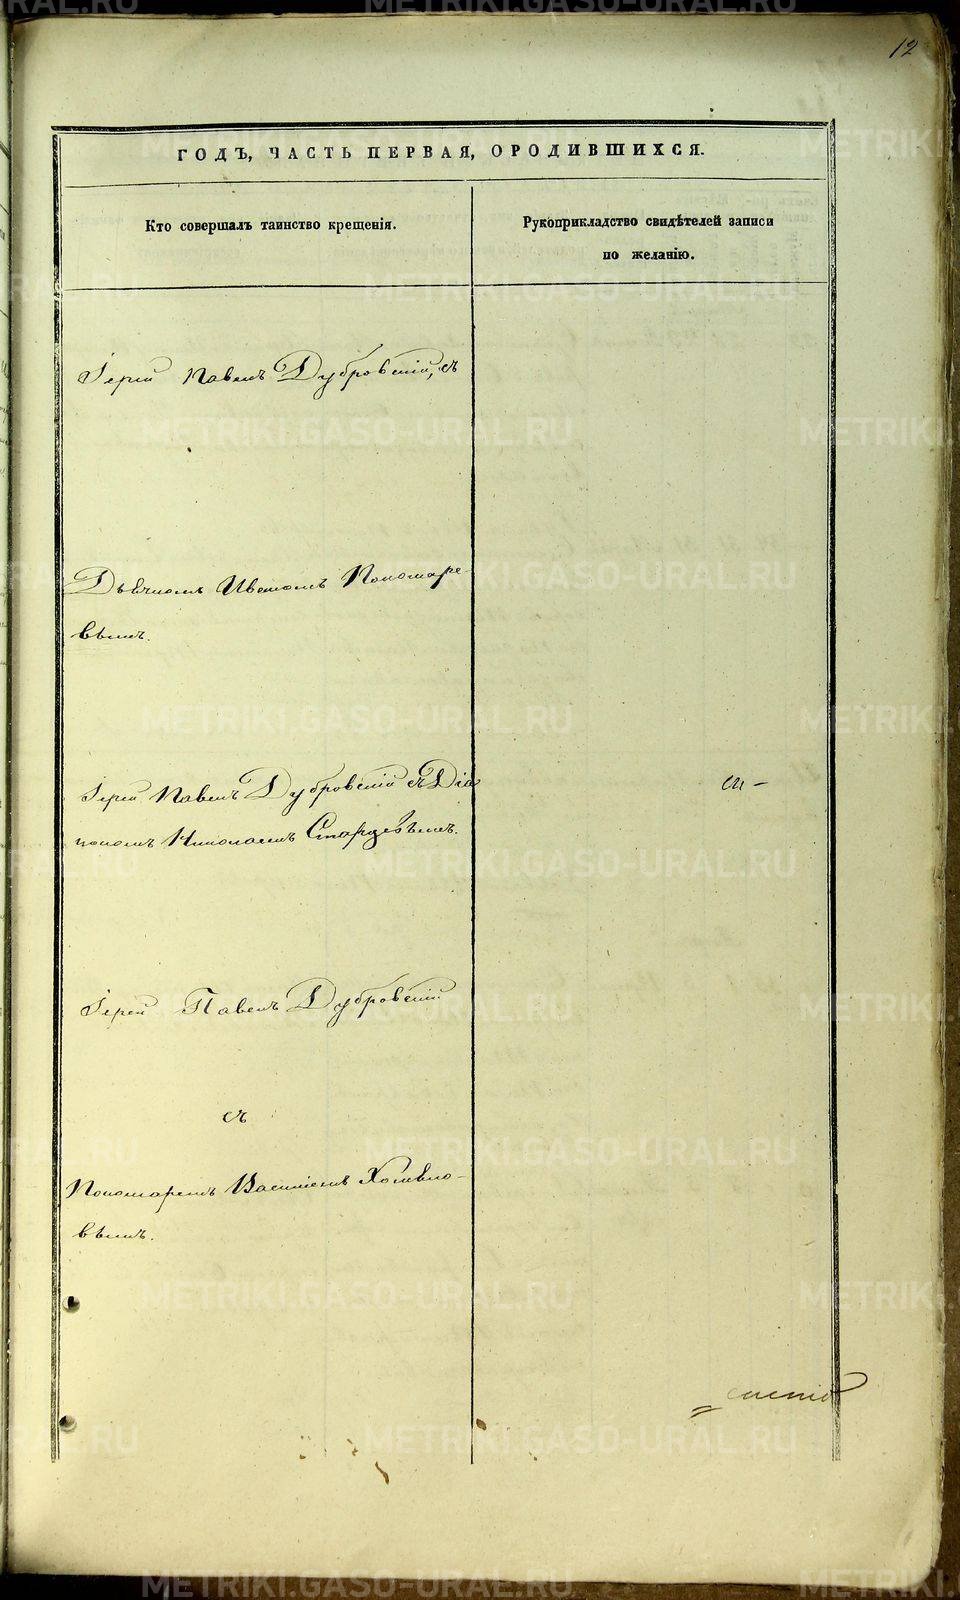 12
ГОДЪ, ЧАСТЬ ПЕРВАЯ, О РОДИВШИХСЯ.
Кто совершалъ таинство крещенія.
Рукоприкладство свидѣтелей записи
по желанію.
Іерей Павелъ Дубровскій, съ
Дьячкомъ Иваномъ Пономаре-
вымъ.
Іерей Павелъ Дубровскій съ Діа
кономъ Николаемъ Старцевымъ.
Іерей Павелъ Дубровскій
съ
Пономаремъ Василіемъ
вымъ.
METRIKI.GASO-URAL.RU